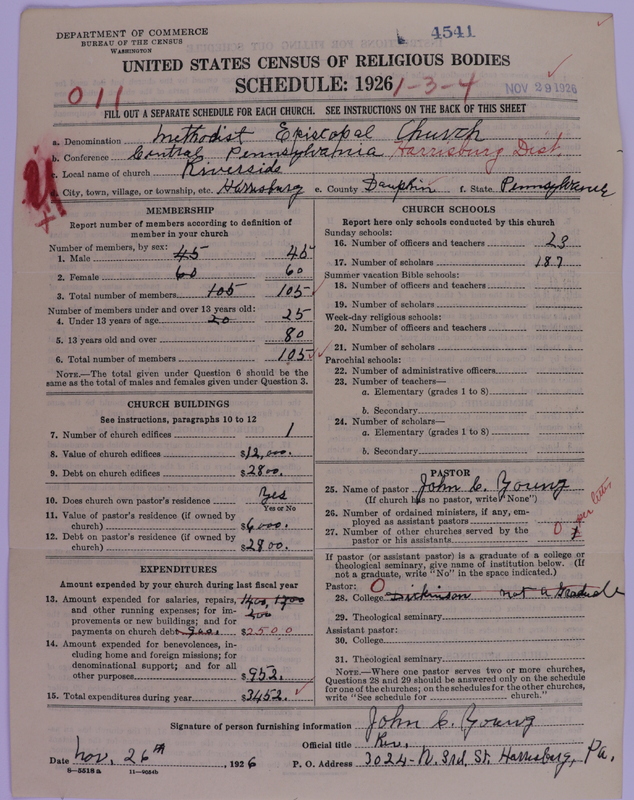 DEPARTMENT OF COMMERCE
BUREAU OF THE CENSUS
WASHINGTON
4541
UNITED STATES CENSUS OF RELIGIOUS BODIES
SCHEDULE: 1926
1-3-4
NOV 29 1926
011
FILL OUT A SEPARATE SCHEDULE FOR EACH CHURCH. SEE INSTRUCTIONS ON THE BACK OF THIS SHEET
a. Denomination Methodist Episcopal Church
b. Conference Central Pennsylvania Harrisburg Dist.
c. Local name of church Riverside
d. City, town, village, or township, etc. Harrisburg e. County Dauphin f. State Pennsylvania
MEMBERSHIP
Report number of members according to definition of member in your church
Number of members, by sex:
1. Male 45 45
2. Female 60 60
3. Total number of members 105 105
Number of members under and over 13 years old:
4. Under 13 years of age 20 25
5. 13 years old and over 80
6. Total number of members 105
NOTE.—The total given under Question 6 should be the same as the total of males and females given under Question 3.
CHURCH BUILDINGS
See instructions, paragraphs 10 to 12
7. Number of church edifices 1
8. Value of church edifices $12,000.
9. Debt on church edifices $2800.
10. Does church own pastor's residence Yes
Yes or No
11. Value of pastor's residence (if owned by church) $6000.
12. Debt on pastor's residence (if owned by church) $2800.
EXPENDITURES
Amount expended by your church during last fiscal year
13. Amount expended for salaries, repairs, and other running expenses; for improvements or new buildings; and for payments on church debt $2500
14. Amount expended for benevolences, including home and foreign missions; for denominational support; and for all other purposes $952.
15. Total expenditures during year $3452.
CHURCH SCHOOLS
Report here only schools conducted by this church
Sunday schools:
16. Number of officers and teachers 23
17. Number of scholars 187
Summer vacation Bible schools:
18. Number of officers and teachers
19. Number of scholars
Week-day religious schools:
20. Number of officers and teachers
21. Number of scholars
Parochial schools:
22. Number of administrative officers
23. Number of teachers—
a. Elementary (grades 1 to 8)
b. Secondary
24. Number of scholars—
a. Elementary (grades 1 to 8)
b. Secondary
PASTOR
25. Name of pastor John C. Young
(If church has no pastor, write "None")
26. Number of ordained ministers, if any, employed as assistant pastors
27. Number of other churches served by the pastor or his assistants 0 1 per letter
If pastor (or assistant pastor) is a graduate of a college or theological seminary, give name of institution below. (If not a graduate, write "No" in the space indicated.)
Pastor: 0
28. College Dickinson not a Graduate
29. Theological seminary
Assistant pastor:
30. College
31. Theological seminary
NOTE.—Where one pastor serves two or more churches, Questions 28 and 29 should be answered only on the schedule for one of the churches; on the schedules for the other churches, write "See schedule for church."
Signature of person furnishing information John C. Young
Official title Rev.
Date Nov. 26th, 1926 P. O. Address 3024-N. 3rd, St. Harrisburg, Pa.
8-5518a 11-9054b